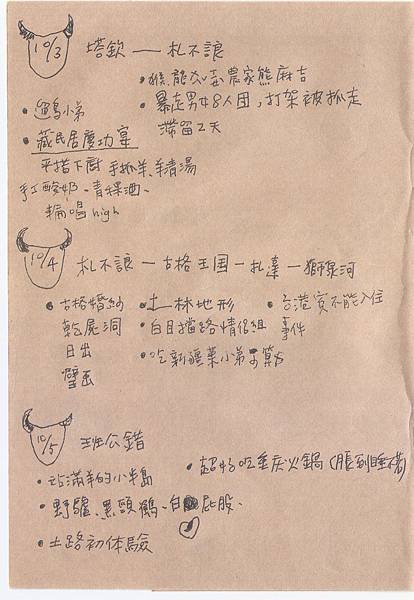 10/3 塔欽 — 札不讓
• 猴、龍女至農家熊麻吉
• 暴走男生8人団，打架被抓走
滯留2天
• 遇鳥小弟
• 藏民居慶功宴
平措下廚 手抓羊、羊清湯
手工酸奶、青稞酒、
搞唱high
10/4 札不讓 — 古格王国 — 札達 — 獅泉河
• 古格婚紗
乾屍洞
日出
壁画
• 土林地形
• 白目擋路情侶組
• 吃新疆菜小弟
• 台港賓不能入住
事件
10/5 班公錯
• 站滿羊的小半島
• 野驢、黑頸鶴、白屁股、
• 土路初体驗
• 超好吃重庆火鍋 (脹到睡橫)